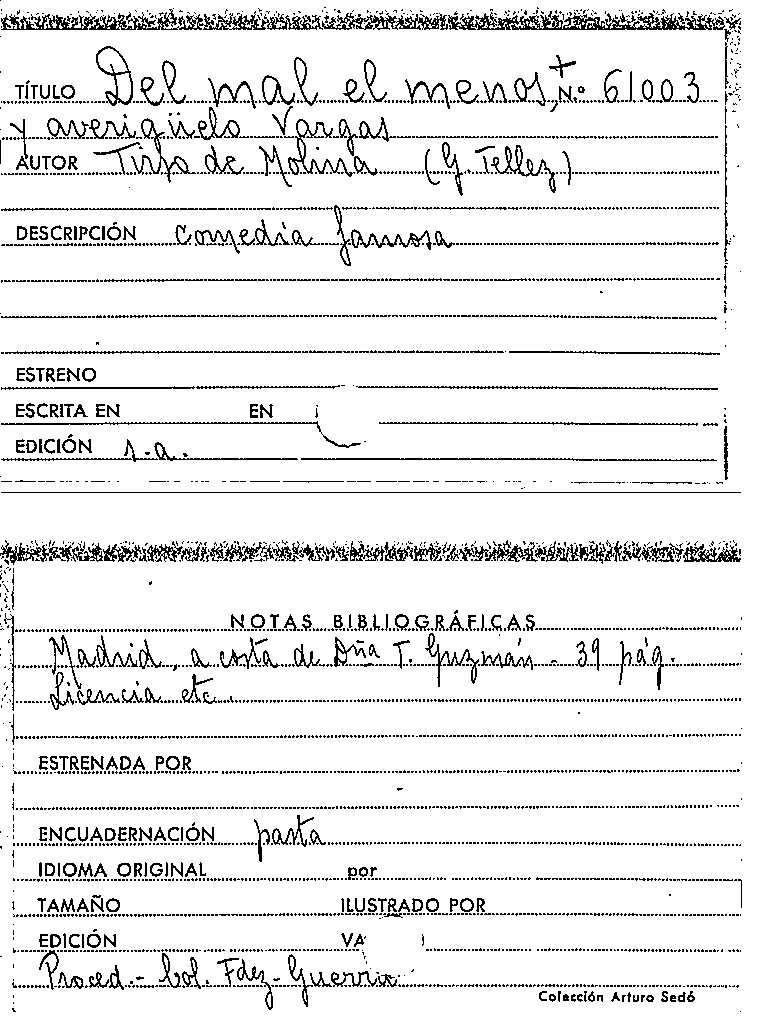 TÍTULO Del mal el menos, + N.º 61003
y averigüelo Vargas
AUTOR Tirso de Molina (G. Tellez)
DESCRIPCIÓN Comedia famosa
ESTRENO
ESCRITA EN EN
EDICIÓN s.a.
NOTAS BIBLIOGRÁFICAS
Madrid, a costa de Dña T. Guzmán - 39 pág.
Licencia etc.
ESTRENADA POR
ENCUADERNACIÓN pasta
IDIOMA ORIGINAL por
TAMAÑO ILUSTRADO POR
EDICIÓN VA
Proced.- Col. Fdez-Guerra
Colección Arturo Sedó